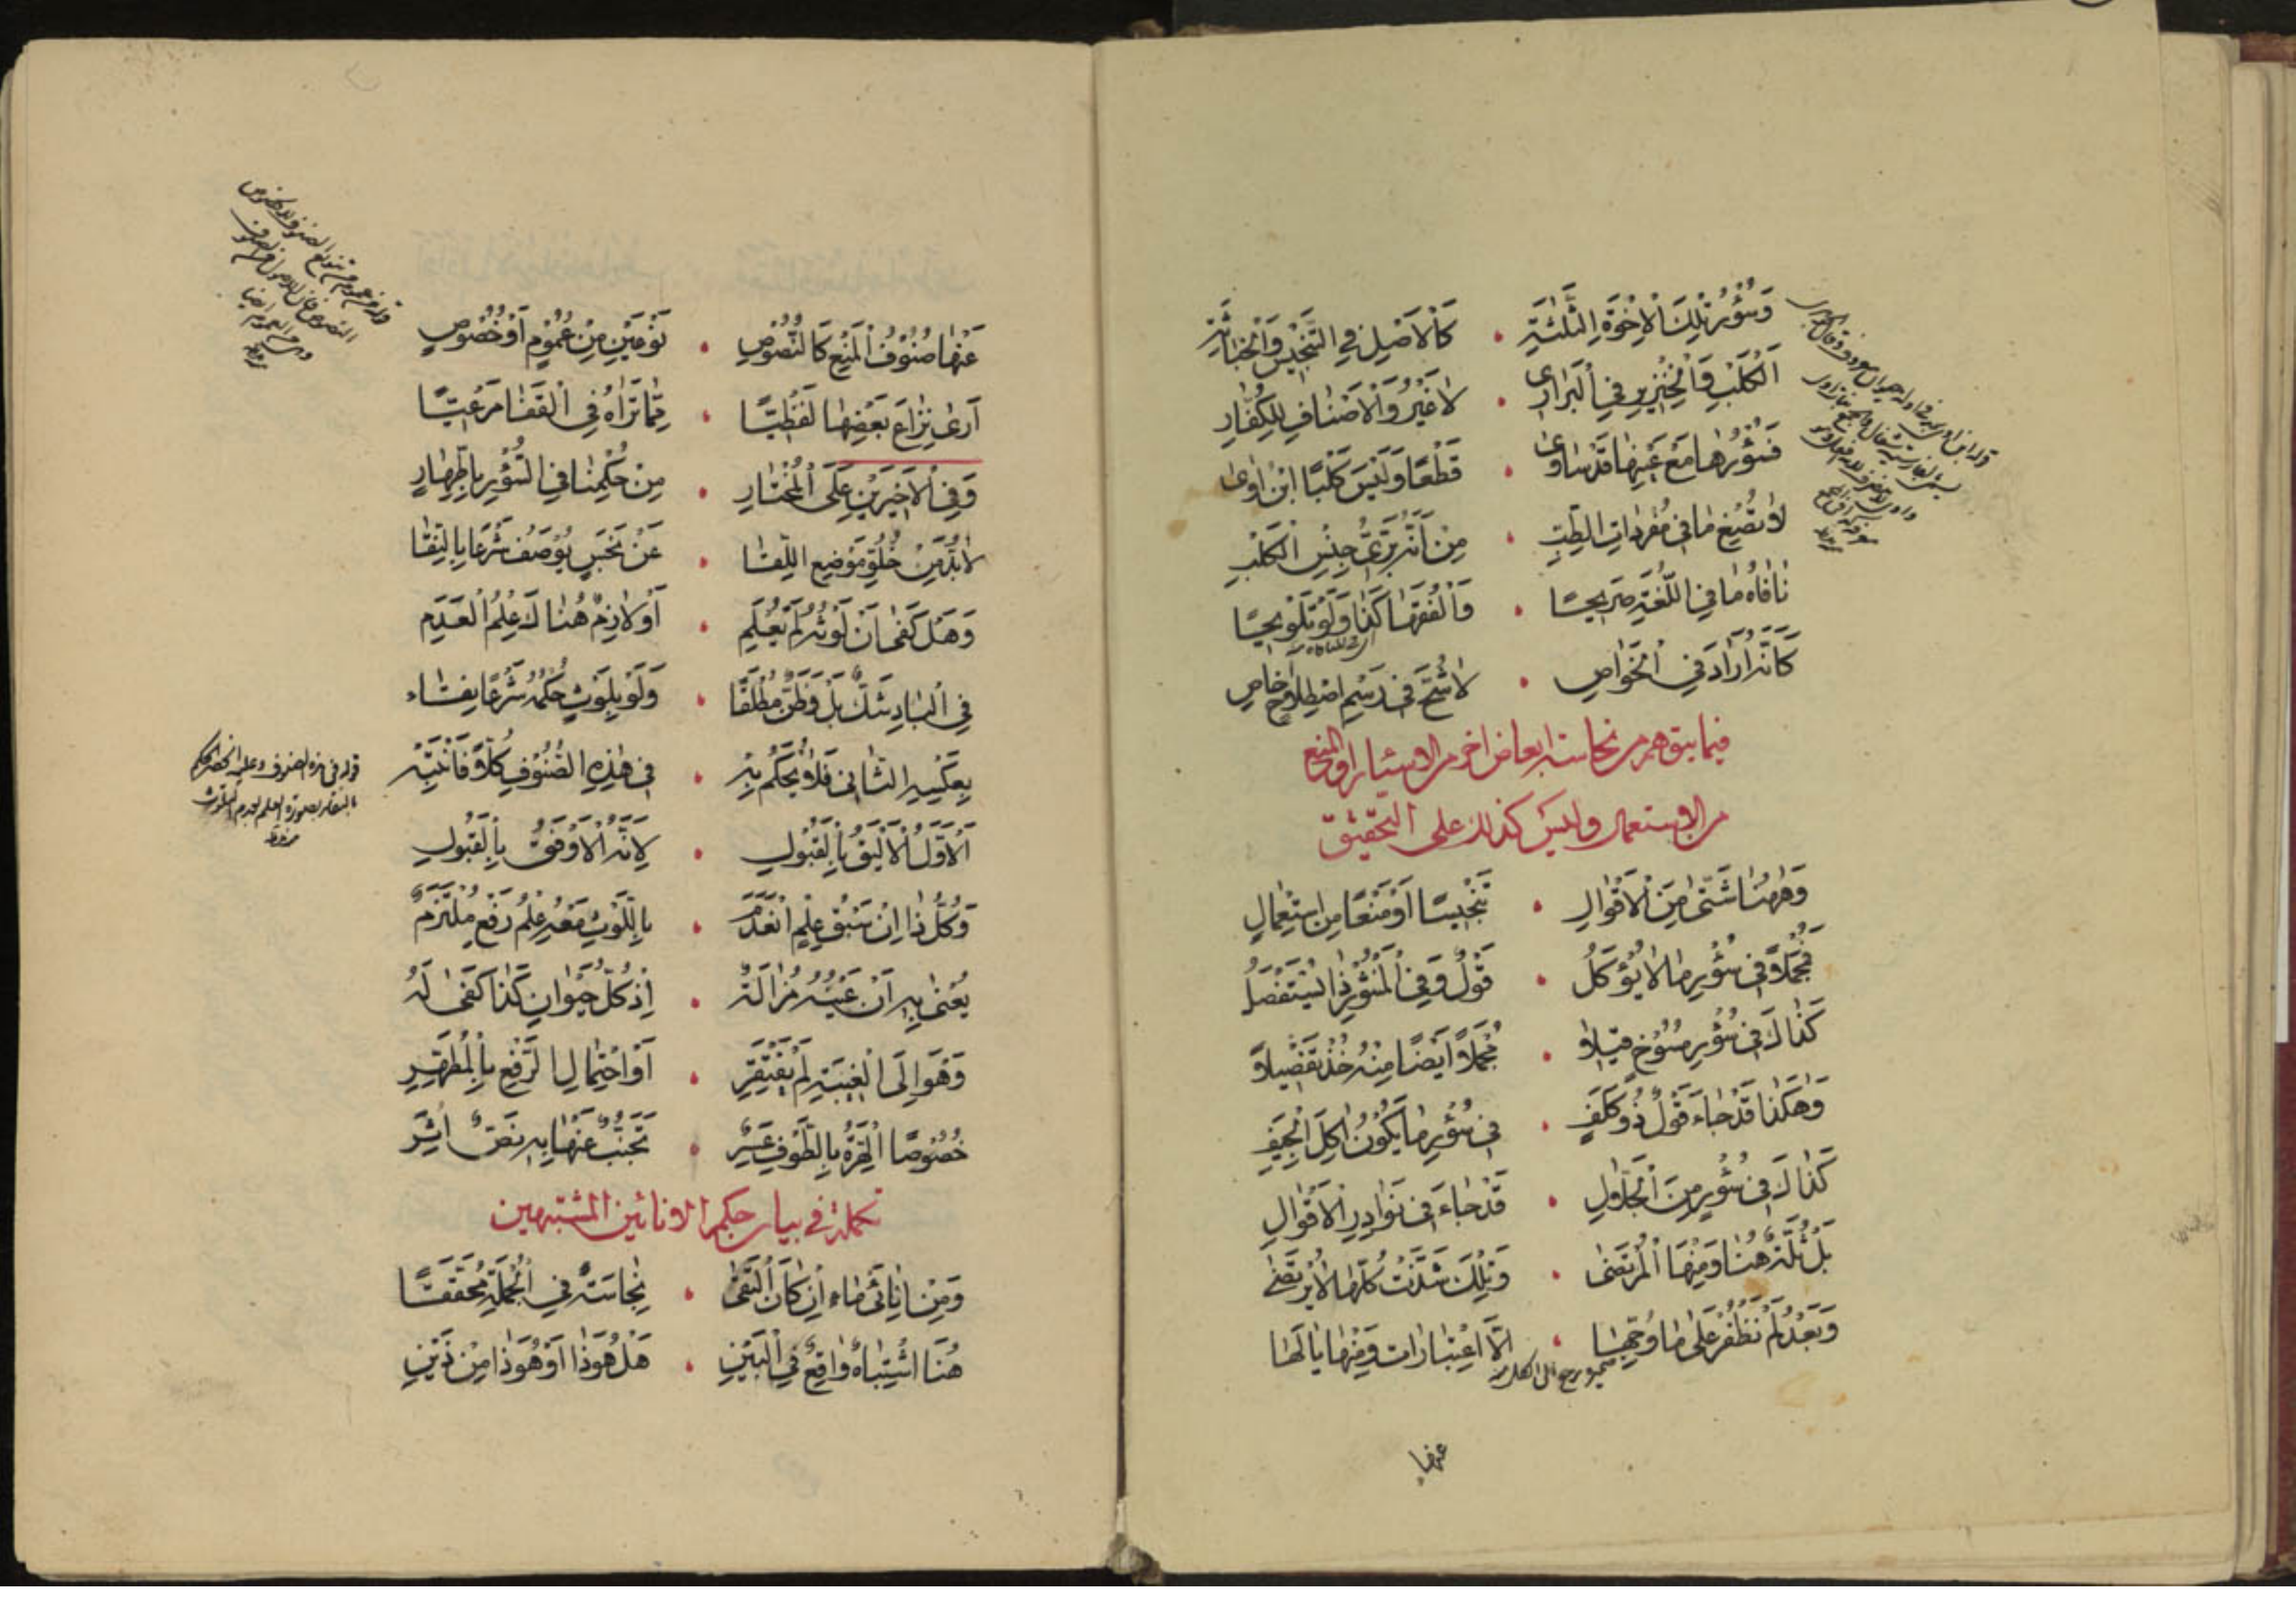 وَسُؤْرُ تِلْكَ الْاِخْوَةِ الثَّلٰثَةِ • كَالْاَصْلِ فِي التَّنْجِيْسِ وَالْخَبَاثَةِ
اَلْكَلْبِ وَالْخِنْزِيرِ فِي الْبَرَارِى • لَا غَيْرُ وَالْاَصْنَافِ لِلْكُفَّارِ
فَسُؤْرُهَا مَعَ غَيْرِهَا قَدْ سَاوٰى • قَطْعًا وَلَيْسَ كَلْبًا ابْنُ اٰوٰى
لَا تُصْغِ مَا فِي مُفْرَدَاتِ الطِّبِّ • مِنْ اَنَّهُ بَرِّىُّ جِنْسِ الْكَلْبِ
نَافَاهُ مَا فِي اللُّغَةِ صَرِيحًا • وَالْفُقَهَا كَذَا وَلَوْ تَلْوِيحًا
كَاَنَّهُ اَرَادَ فِي الْخَوَاصِ • لَا شُحَّ فِي رَسْمِ اصْطِلَاحٍ خَاصِ
فيما يتوهم من نجاسة ابعاض اخر من الاسئار او المنع
من الاستعمال وليس كذلك على التحقيق
وَهٰهُنَا شَتّٰى مِنَ الْاَقْوَالِ • تَنْجِيسًا اَوْ مَنْعًا مِنِ اسْتِعْمَالِ
فَمُجْمَلًا فِي سُؤْرِ مَا لَا يُؤْكَلُ • قَوْلٌ وَفِي الْمَنْثُورِ ذَا يُسْتَفْصَلُ
كَذَاكَ فِي سُؤْرِ مُسُوخٍ قِيلَا • مُجْمَلًا اَيْضًا مِنْهُ خُذْ تَفْصِيلًا
وَهٰكَذَا قَدْ جَاءَ قَوْلٌ ذُو كَلَفٍ • فِي سُؤْرِ مَا يَكُونُ اٰكِلَ الْجِيَفِ
كَذَاكَ فِي سُؤْرٍ مِنَ الْجَلَّالِ • قَدْ جَاءَ فِي نَوَادِرِ الْاَقْوَالِ
بَلْ ثُلَّةٌ هُنَا وَمِنْهَا الْمُرْتَضٰى • وَتِلْكَ شَذَّتْ كُلُّهَا لَا يُرْتَضٰى
وَبَعْدُ لَمْ نَظْفُرْ عَلٰى مَا وُجِّهَا • اِلَّا اعْتِبَارَاتٍ وَمِنْهَا يَا لَهَا
عنها
عَنْهَا صُنُوفُ الْمَنْعِ كَالنُّصُوصِ • نَوْعَيْنِ مِنْ عُمُومٍ اَوْ خُصُوصٍ
اَرٰى نِزَاعَ بَعْضِهَا لَفْظِيًّا • مِمَّا تَرَاهُ فِي الْقَفَا مَرْعِيًّا
وَفِي الْاَخِيرَيْنِ عَلَى الْمُخْتَارِ • مِنْ حُكْمِنَا فِي السُّؤْرِ بِالطَّهَارِ
لَابُدَّ مِنْ خُلُوِّ مَوْضِعِ اللِّقَا • عَنْ نَجَسٍ يُوصَفُ شَرْعًا بِالنَّقَا
وَهَلْ كَفٰى اَنْ لَوْثُهُ لَمْ يُعْلَمِ • اَوْ لَازِمٌ هُنَاكَ عِلْمُ الْعَدَمِ
فِي الْبَادِ شَكٌّ بَلْ وَظَنٌّ مُطْلَقًا • وَلَوْ بِلَوْثٍ حُكْمُهُ شَرْعًا
بِعَكْسِ الثَّانِي فَلَا يُحْكَمُ بِهِ • فِي هٰذِهِ الصُّنُوفِ كُلًّا فَانْتَبِهْ
اَلْاَوَّلُ الْاَلْيَقُ بِالْقَبُولِ • لِاَنَّهُ الْاَوْفَقُ بِالْقَبُولِ
وَكُلُّ ذَا اِنْ سَبْقُ عِلْمٍ انْعَدَمَ • بِاللَّوْثِ مَعْهُ عِلْمُ رَفْعٍ مُلْتَزَمٌ
يُعْنٰى بِهِ اَنْ عَيْنُهُ مُزَالَةٌ • اِذْ كُلُّ حَيَوَانٍ كَذَا كَفٰى لَهُ
وَهُوَ اِلَى الْغَيْبَةِ لَمْ يَفْتَقِرِ • اَوِ احْتِمَالِ الرَّفْعِ بِالْمُطَهِّرِ
خُصُوصًا الْهِرَّةُ بِالطَّوْفِ عَسِرَ • تَجَنُّبٌ عَنْهَا بِهِ نَصٌّ اُثِرَ
تكملة في بيان حكم الانائين المشتبهين
وَمِنْ اِنَائَىْ مَاءٍ اِنْ كَانَ الْتَقٰى • نِجَاسَةٌ فِي الْجُمْلَةِ مُحَقَّقًا
هُنَا اشْتِبَاهٌ وَاقِعٌ فِي الْبَيْنِ • هَلْ هُوَ ذَا اَوْ هُوَ ذَا مِنْ ذَيْنِ